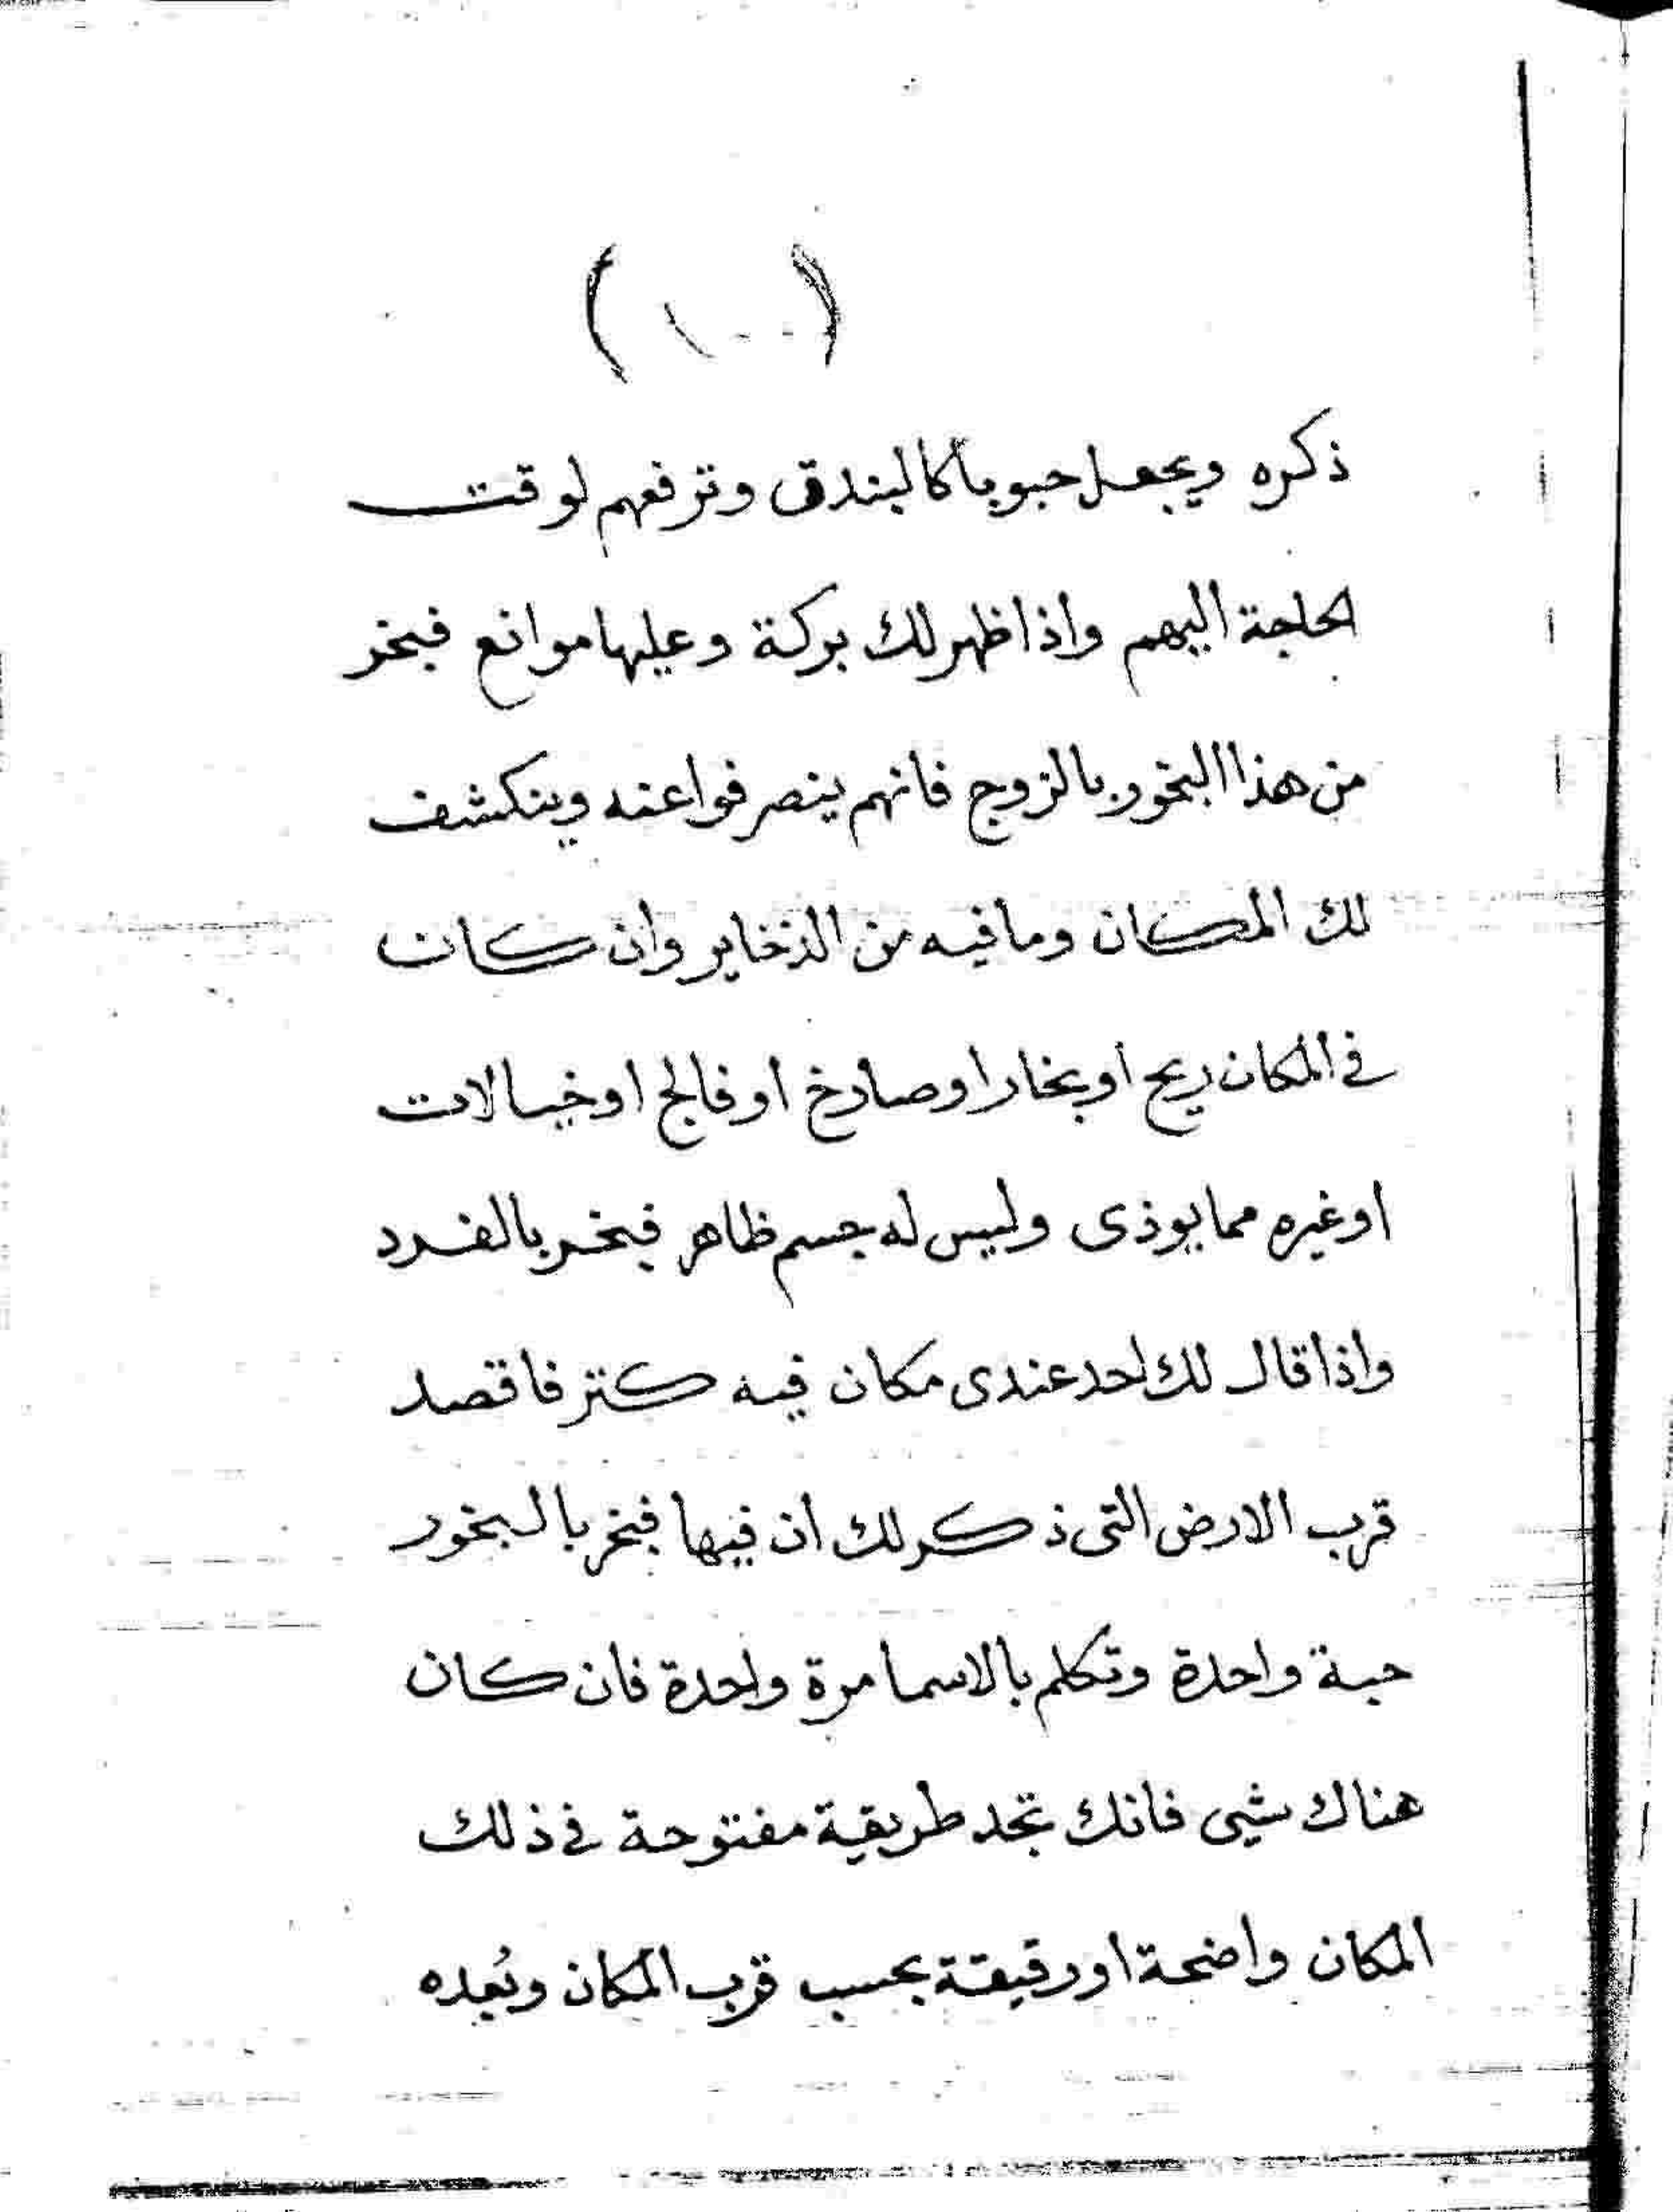 (١٠٠)
ذكره ويجعل حبوباً كالبندق وترفعهم لوقت
الحاجة اليهم واذا ظهر لك بركة وعليها موانع فبخر
من هذا البخور بالزوج فانهم ينصرفوا عنه وينكشف
لك المكان وما فيه من الذخاير وان كان
في المكان ريح او بخار او صارخ او فالج او خيالات
او غيره مما يوذى وليس له جسم ظاهر فبخر بالفرد
واذا قال لك احد عندى مكان فيه كنز فاقصد
قرب الارض التى ذكر لك ان فيها فبخر بالبخور
حبة واحدة وتكلم بالاسما مرة واحدة فان كان
هناك شيى فانك تجد طريقة مفتوحة في ذلك
المكان واضحة او رقيقة بحسب قرب المكان وبُعده